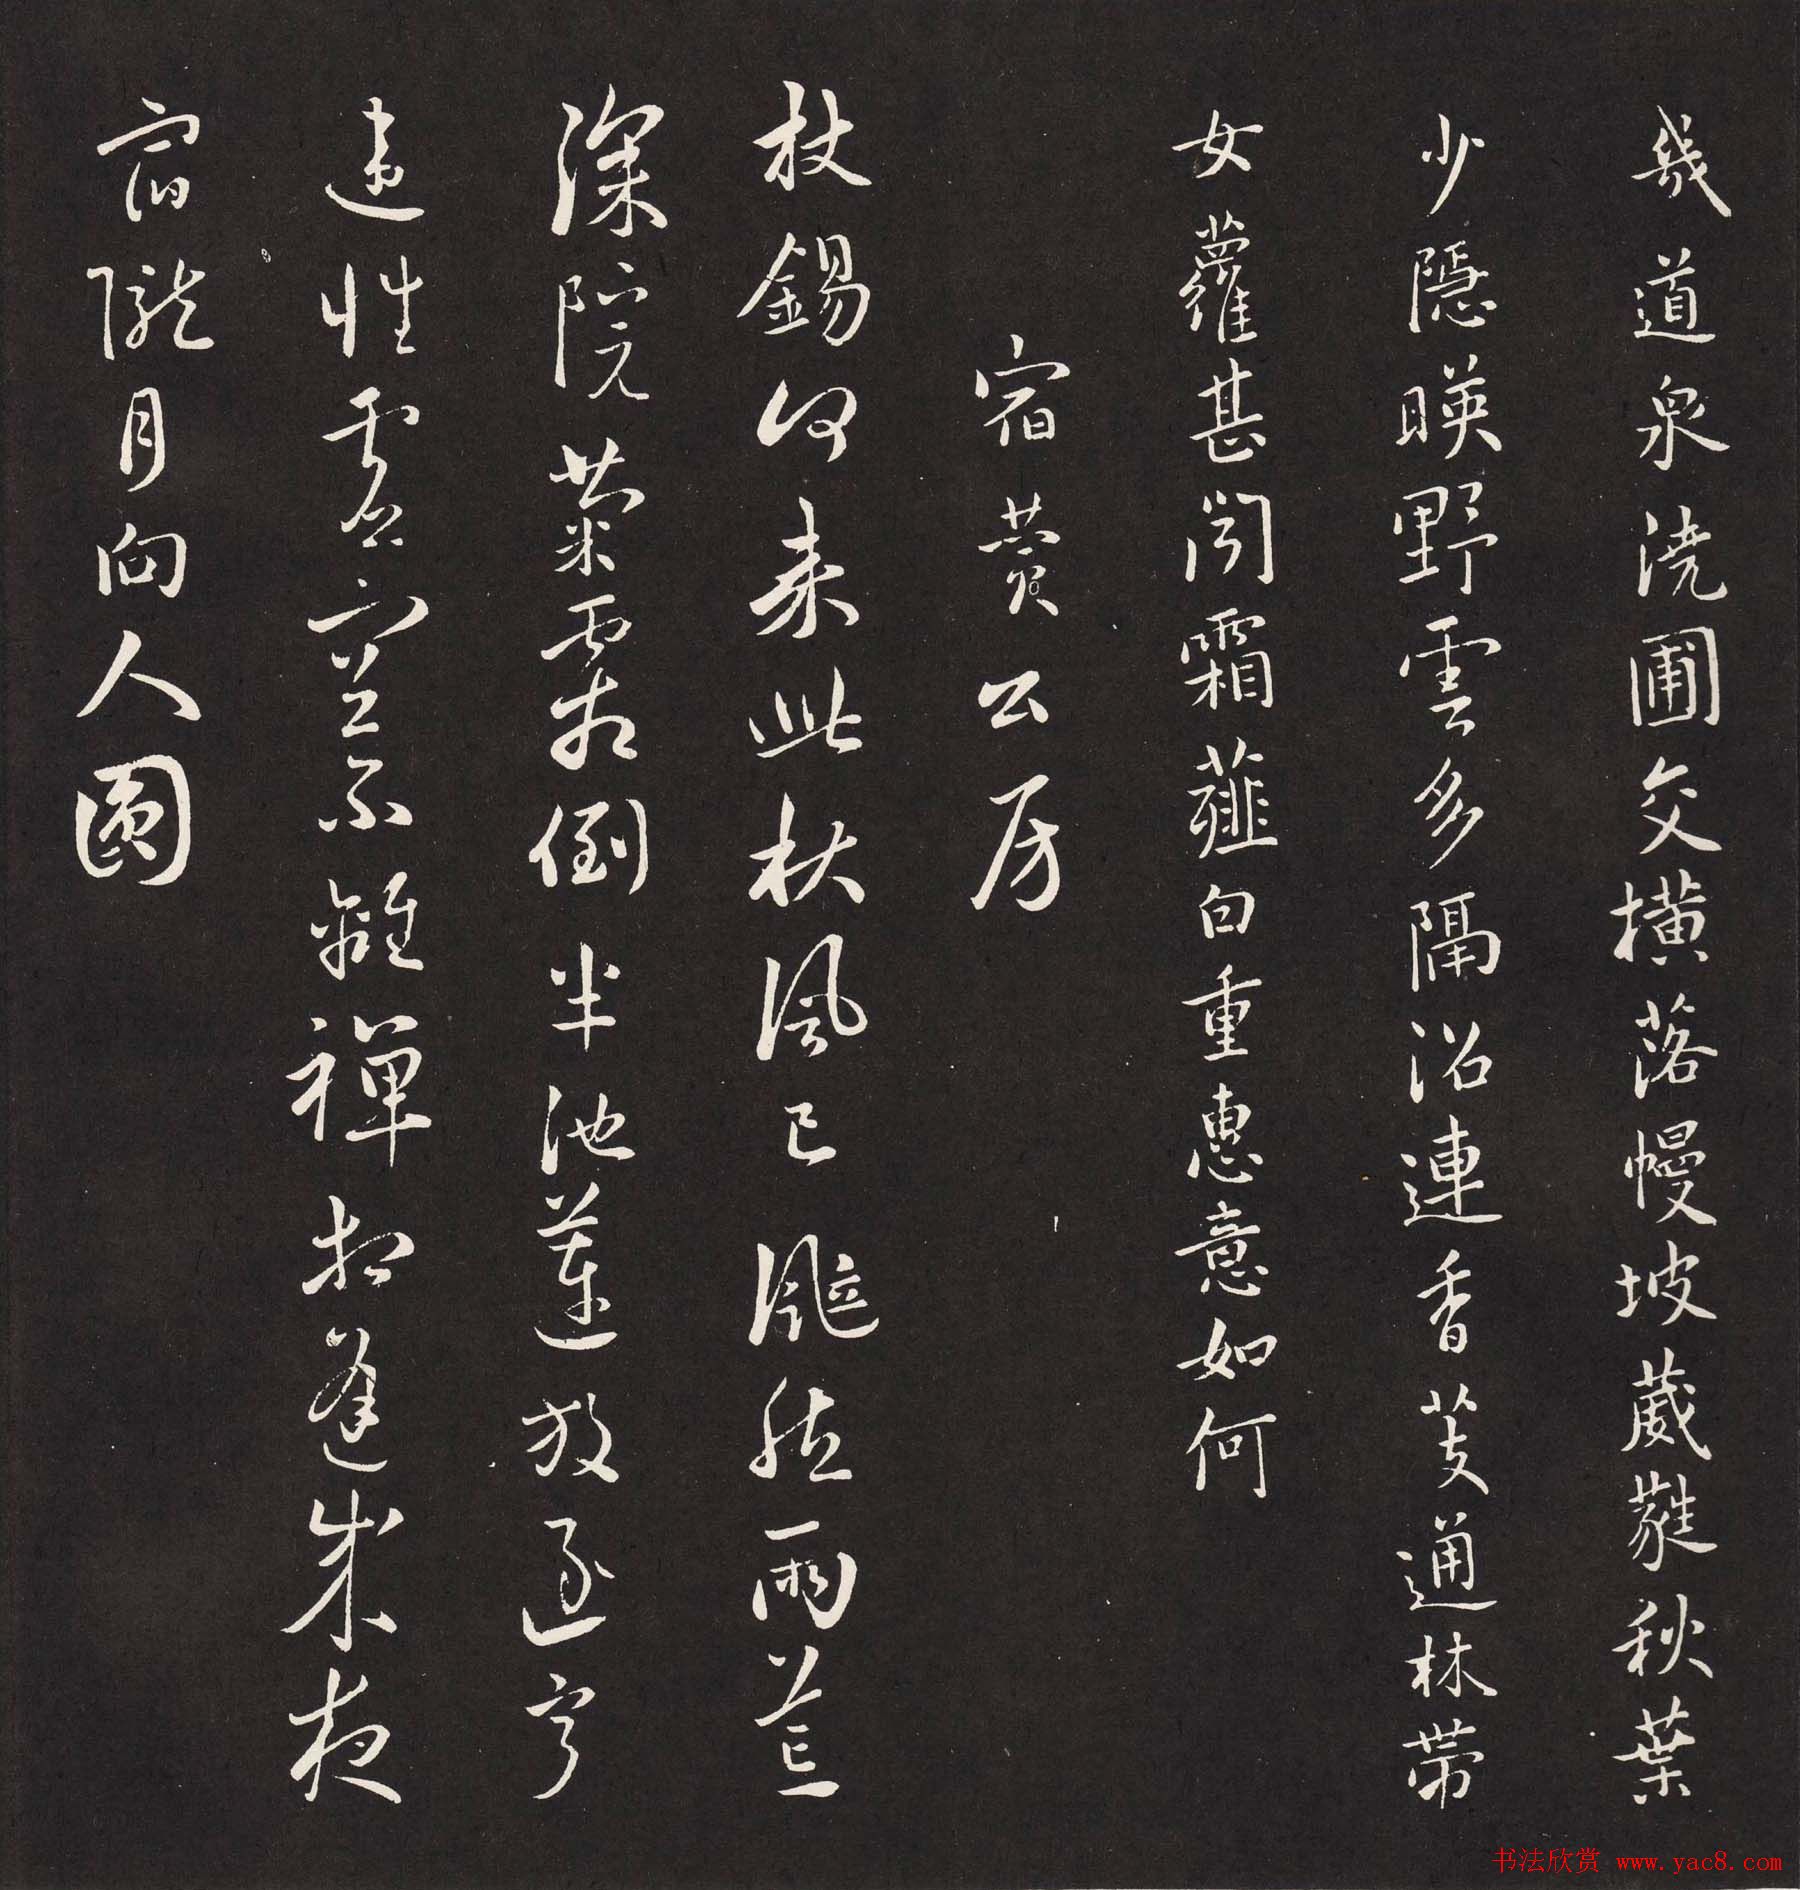 幾道泉澆圃交橫落幔坡葳蕤秋葉
少隱暎野雲多隔沼連香芰通林帶
女蘿甚聞霜薤白重惠意如何
宿贊公房
杖錫何來此秋風已颯然雨荒
深院菊霜倒半池蓮放逐寧
違性虛空不離禪相逢成夜
宿隴月向人圓
书法欣赏 www.yac8.com